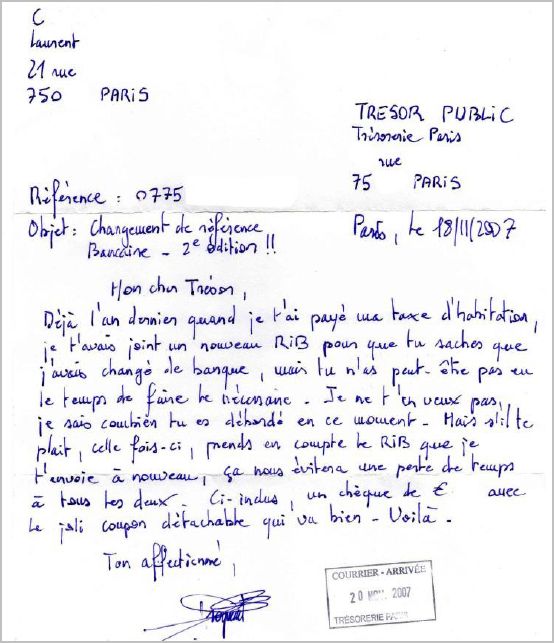 C
Laurent
21 rue
750 PARIS
TRESOR PUBLIC
Trésorerie Paris
rue
75 PARIS
Référence : 0775
Objet : Changement de référence
Bancaire - 2e édition !!
Paris, le 18/11/2007
Mon cher Trésor,
Déjà l'an dernier quand je t'ai payé ma taxe d'habitation,
je t'avais joint un nouveau RiB pour que tu saches que
j'avais changé de banque, mais tu n'as peut-être pas eu
le temps de faire le nécessaire - Je ne t'en veux pas,
je sais combien tu es débordé en ce moment - Mais s'il te
plait, cette fois-ci, prends en compte le RiB que je
t'envoie à nouveau, ça nous évitera une perte de temps
à tous les deux - Ci-inclus, un chèque de € avec
le joli coupon détachable qui va bien - Voilà -
Ton affectionné,
COURRIER - ARRIVÉE
20 NOV. 2007
TRÉSORERIE